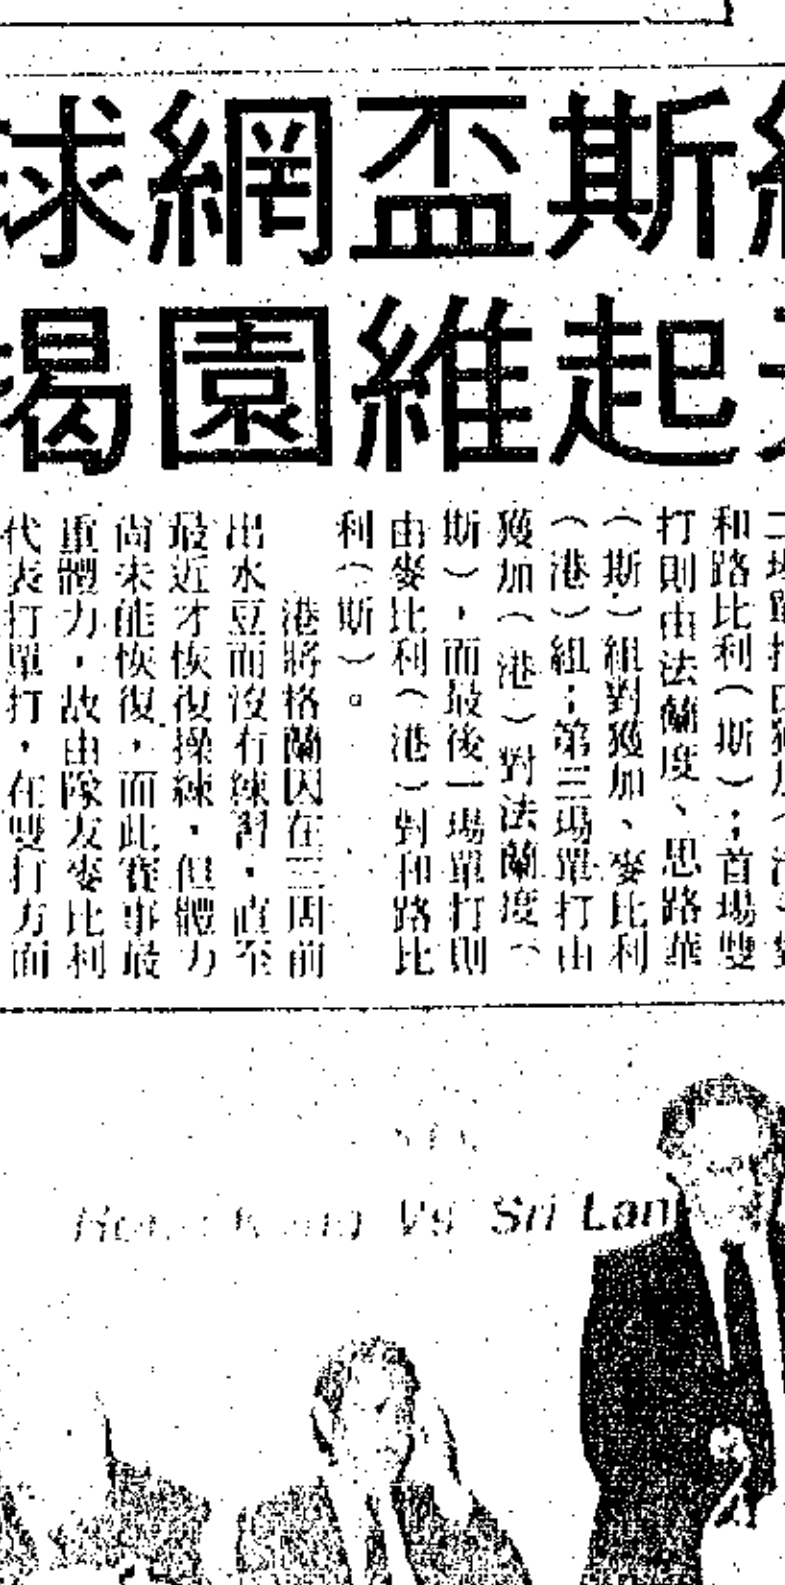 斯盃網球
起維園揭
二場單打由獲加（港）對
和路比利（斯）；首場雙
打則由法蘭度、思路華
（斯）組對獲加、麥比利
（港）組；第三場單打由
獲加（港）對法蘭度（
斯），而最後一場單打則
由麥比利（港）對和路比
利（斯）。
港將格蘭因在三周前
出水豆而沒有練習，直至
最近才恢復操練，但體力
尚未能恢復，而此賽事最
重體力，故由隊友麥比利
代表打單打，在雙打方面
Hong Kong Vs Sri Lan